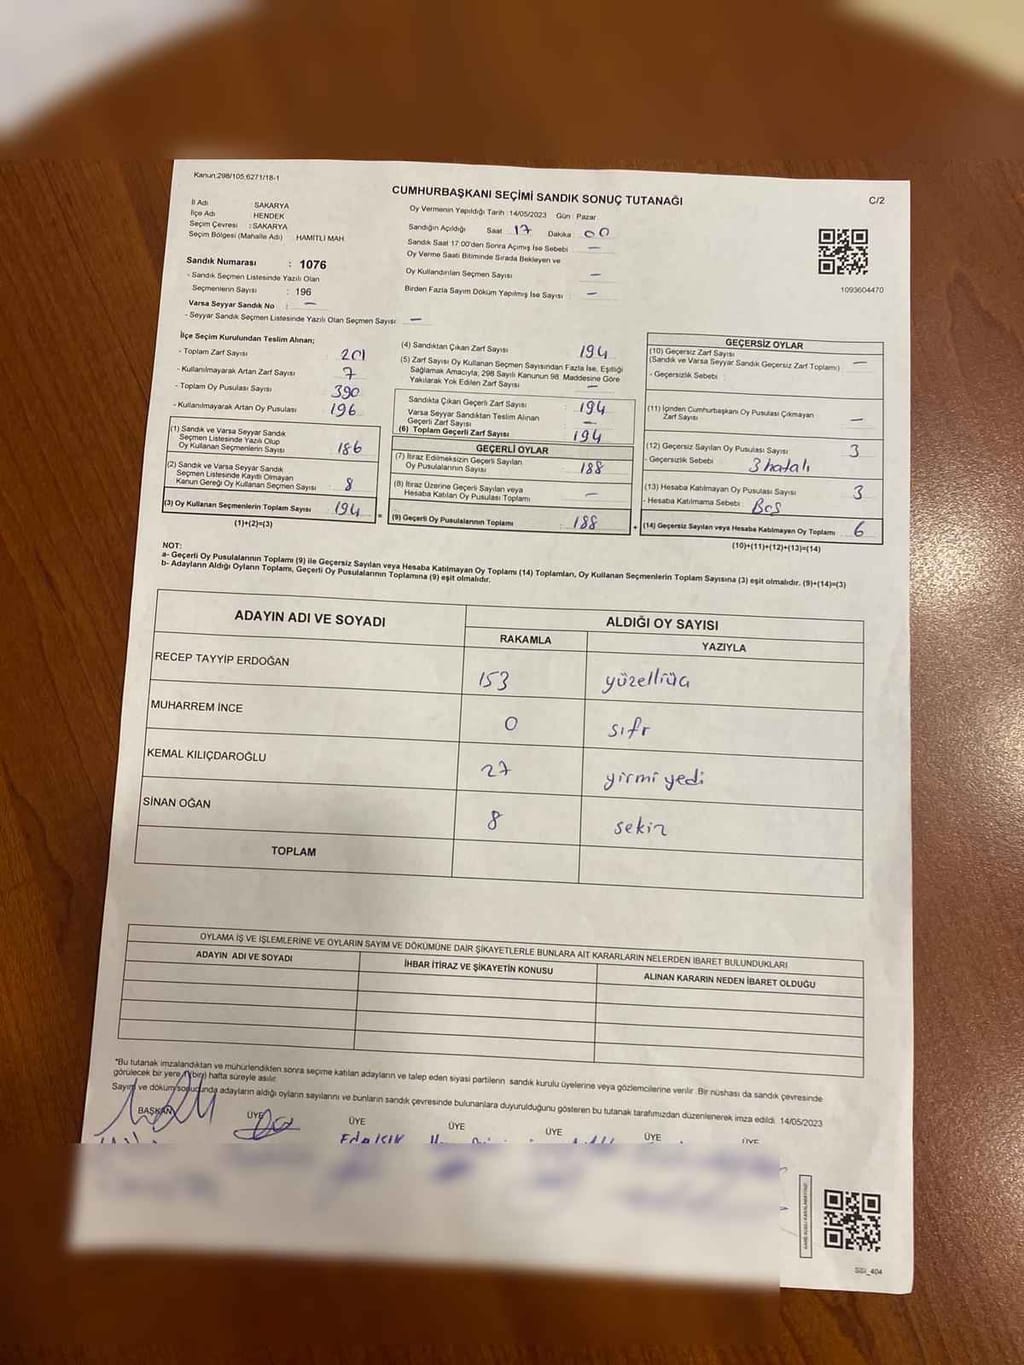 Kanun:298/105,6271/18-1
CUMHURBAŞKANI SEÇİMİ SANDIK SONUÇ TUTANAĞI
C/2
İl Adı SAKARYA
İlçe Adı HENDEK
Seçim Çevresi : SAKARYA
Seçim Bölgesi (Mahalle Adı) HAMİTLİ MAH
Sandık Numarası : 1076
- Sandık Seçmen Listesinde Yazılı Olan
Seçmenlerin Sayısı : 196
Varsa Seyyar Sandık No : —
- Seyyar Sandık Seçmen Listesinde Yazılı Olan Seçmen Sayısı —
Oy Vermenin Yapıldığı Tarih : 14/05/2023 Gün : Pazar
Sandığın Açıldığı Saat 17 Dakika 00
Sandık Saat 17:00'den Sonra Açımış İse Sebebi —
Oy Verme Saati Bitiminde Sırada Bekleyen ve
Oy Kullandırılan Seçmen Sayısı —
Birden Fazla Sayım Döküm Yapılmış İse Sayısı —
1093604470
İlçe Seçim Kurulundan Teslim Alınan;
- Toplam Zarf Sayısı 201
- Kullanılmayarak Artan Zarf Sayısı 7
- Toplam Oy Pusulası Sayısı 390
- Kullanılmayarak Artan Oy Pusulası 196
(1) Sandık ve Varsa Seyyar Sandık
Seçmen Listesinde Yazılı Olup
Oy Kullanan Seçmenlerin Sayısı 186
(2) Sandık ve Varsa Seyyar Sandık
Seçmen Listesinde Kayıtlı Olmayan
Kanun Gereği Oy Kullanan Seçmen Sayısı 8
(3) Oy Kullanan Seçmenlerin Toplam Sayısı 194
(1)+(2)=(3)
=
(4) Sandıktan Çıkan Zarf Sayısı 194
(5) Zarf Sayısı Oy Kullanan Seçmen Sayısından Fazla İse, Eşitliği
Sağlamak Amacıyla, 298 Sayılı Kanunun 98. Maddesine Göre
Yakılarak Yok Edilen Zarf Sayısı —
Sandıkta Çıkan Geçerli Zarf Sayısı : 194
Varsa Seyyar Sandıktan Teslim Alınan
Geçerli Zarf Sayısı : —
(6) Toplam Geçerli Zarf Sayısı 194
GEÇERLİ OYLAR
(7) İtiraz Edilmeksizin Geçerli Sayılan
Oy Pusulalarının Sayısı 188
(8) İtiraz Üzerine Geçerli Sayılan veya
Hesaba Katılan Oy Pusulası Toplamı —
(9) Geçerli Oy Pusulalarının Toplamı 188
+
GEÇERSİZ OYLAR
(10) Geçersiz Zarf Sayısı
(Sandık ve Varsa Seyyar Sandık Geçersiz Zarf Toplamı) —
- Geçersizlik Sebebi :
(11) İçinden Cumhurbaşkanı Oy Pusulası Çıkmayan
Zarf Sayısı —
(12) Geçersiz Sayılan Oy Pusulası Sayısı 3
- Geçersizlik Sebebi : 3 hatalı
(13) Hesaba Katılmayan Oy Pusulası Sayısı 3
- Hesaba Katılmama Sebebi : Boş
(14) Geçersiz Sayılan veya Hesaba Katılmayan Oy Toplamı 6
(10)+(11)+(12)+(13)=(14)
NOT:
a- Geçerli Oy Pusulalarının Toplamı (9) ile Geçersiz Sayılan veya Hesaba Katılmayan Oy Toplamı (14) Toplamları, Oy Kullanan Seçmenlerin Toplam Sayısına (3) eşit olmalıdır. (9)+(14)=(3)
b- Adayların Aldığı Oyların Toplamı, Geçerli Oy Pusulalarının Toplamına (9) eşit olmalıdır.
ADAYIN ADI VE SOYADI ALDIĞI OY SAYISI
RAKAMLA YAZIYLA
RECEP TAYYİP ERDOĞAN 153 yüzelliüç
MUHARREM İNCE 0 sıfır
KEMAL KILIÇDAROĞLU 27 yirmi yedi
SİNAN OĞAN 8 sekiz
TOPLAM
OYLAMA İŞ VE İŞLEMLERİNE VE OYLARIN SAYIM VE DÖKÜMÜNE DAİR ŞİKAYETLERLE BUNLARA AİT KARARLARIN NELERDEN İBARET BULUNDUKLARI
ADAYIN ADI VE SOYADI İHBAR İTİRAZ VE ŞİKAYETİN KONUSU ALINAN KARARIN NEDEN İBARET OLDUĞU
*Bu tutanak imzalandıktan ve mühürlendikten sonra seçime katılan adayların ve talep eden siyasi partilerin sandık kurulu üyelerine veya gözlemcilerine verilir. Bir nüshası da sandık çevresinde
görülecek bir yere (bir) hafta süreyle asılır.
Sayım ve döküm sonucunda adayların aldığı oyların sayılarını ve bunların sandık çevresinde bulunanlara duyurulduğunu gösteren bu tutanak tarafımızdan düzenlenerek imza edildi. 14/05/2023
BAŞKAN ÜYE ÜYE ÜYE ÜYE ÜYE ÜYE
SSİ_404